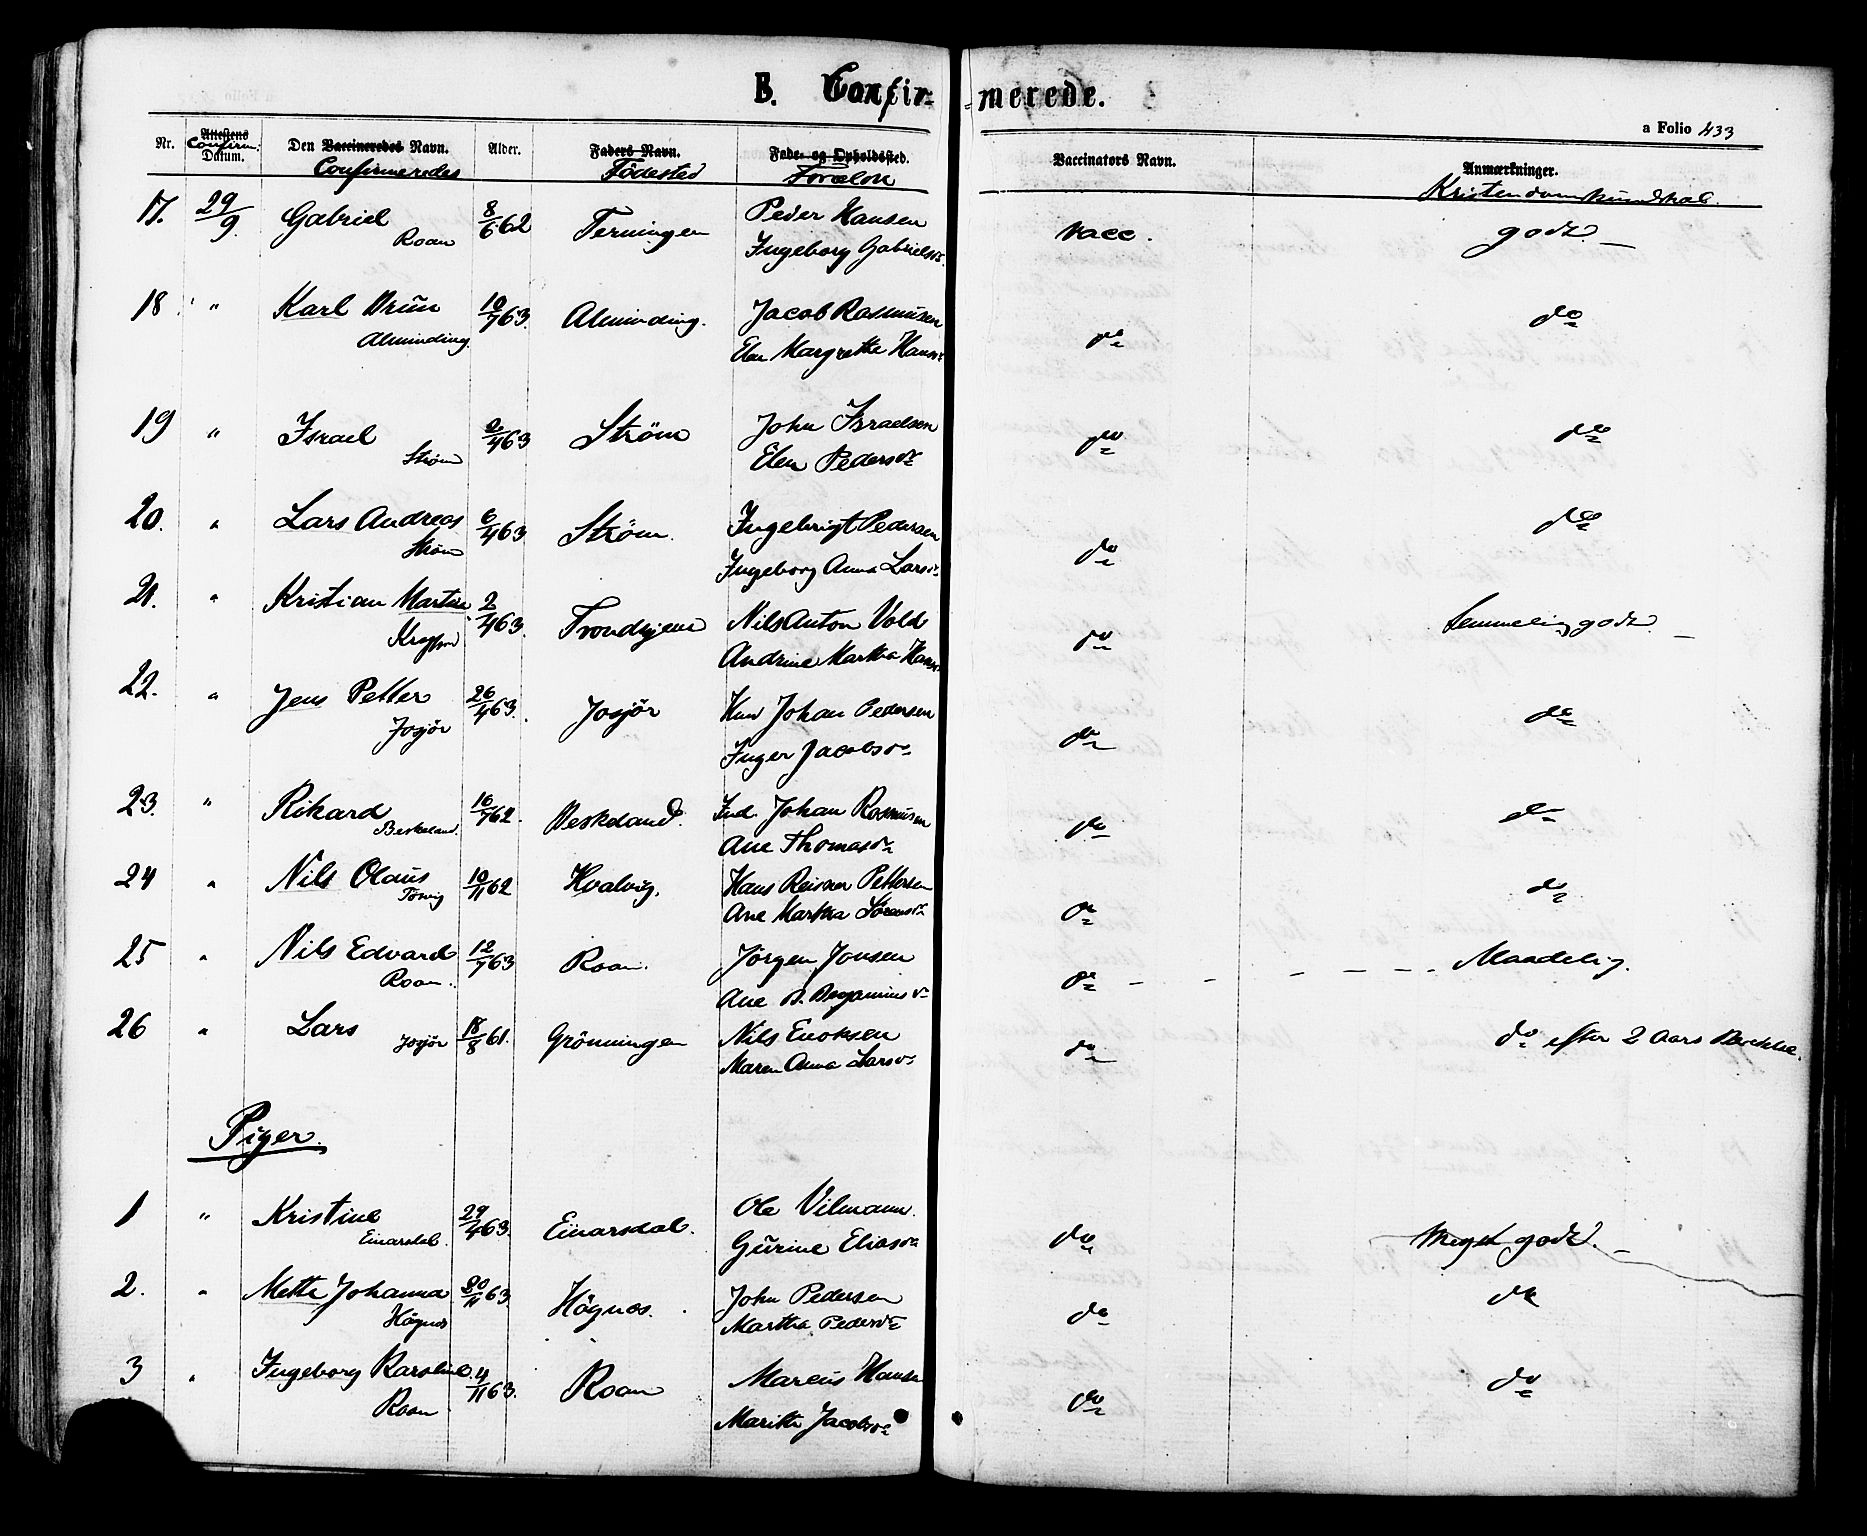 B. Confirmerede.
a Folio 433
Nr. Attestens Confirm. Datum. Den Vaccineredes Navn. Confirmeredes Alder. Faders Navn. Födested Føde- og Opholdssted. Forældre Vaccinators Navn. Anmærkninger. Kristendomskundskab
17. 29/9 Gabriel 8/6 62 Terningen Peder Hansen vacc. godt. —
Roan Ingeborg Gabrielsdr
18. " Karl Brun 10/7 63. Alminding. Jacob Rasmusen do do
Alminding. Elen Margrethe Hansdr
19 " Israel 2/4 63 Strøm John Israelsen do do
Strøm Elen Pedersdr
20. " Lars Andreas 6/4 63 Strøm. Ingebrigt Pedersen do do
Strøm Ingeborg Anna Larsdr
21. " Kristian Martin 2/4 63. Trondhjem Nils Anton Vold do temmelig godt. —
Andrine Martha Hansdr
22. " Jens Petter 26/4 63. Josjör Johan Pedersen do do
Josjör Inger Jacobsdr
23. " Rikard 16/7 62. Beskeland. Ind. Johan Rasmusen do do
Beskeland. Ane Thomasdr
24 " Nils Olaus 10/11 62 Hvalvig. Hans Reisner Pettersen do do
Ane Martha Sörensdr
25 " Nils Edvard 12/7 63 Roan. Jörgen Jonsen do — — — — — Maadelig.
Roan. Ane B. Benjaminsdr
26 " Lars 18/8 61. Grönningen Nils Enoksen do do efter 2 Aars Række.
Josjör Maren Anna Larsdr
Piger.
1 " Kristine 29/4 63. Einarsdal. Ole Vilmann. do Meget godt. —
Einarsdal. Gurine Eliasdr
2. " Mette Johanna 20/11 63. Högnæs. John Pedersen do do
Högnæs Martha Pedersdr
3 " Ingeborg Karoline. 4/11 63. Roan Marcus Hansen do do
Roan Marithe Jacobsdr